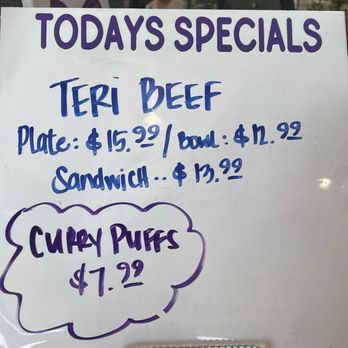 TODAYS SPECIALS
TERI BEEF
Plate: $15.99/Bowl: $12.99
Sandwich.. $13.99
CURRY PUFFS
$7.99